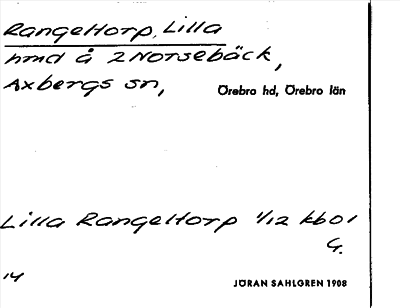 Rangeltorp, Lilla
hmd å 2 Norsebäck,
Axbergs sn,
Örebro hd, Örebro län
Lilla Rangeltorp 1/12 kb01
G.
14
JÖRAN SAHLGREN 1908